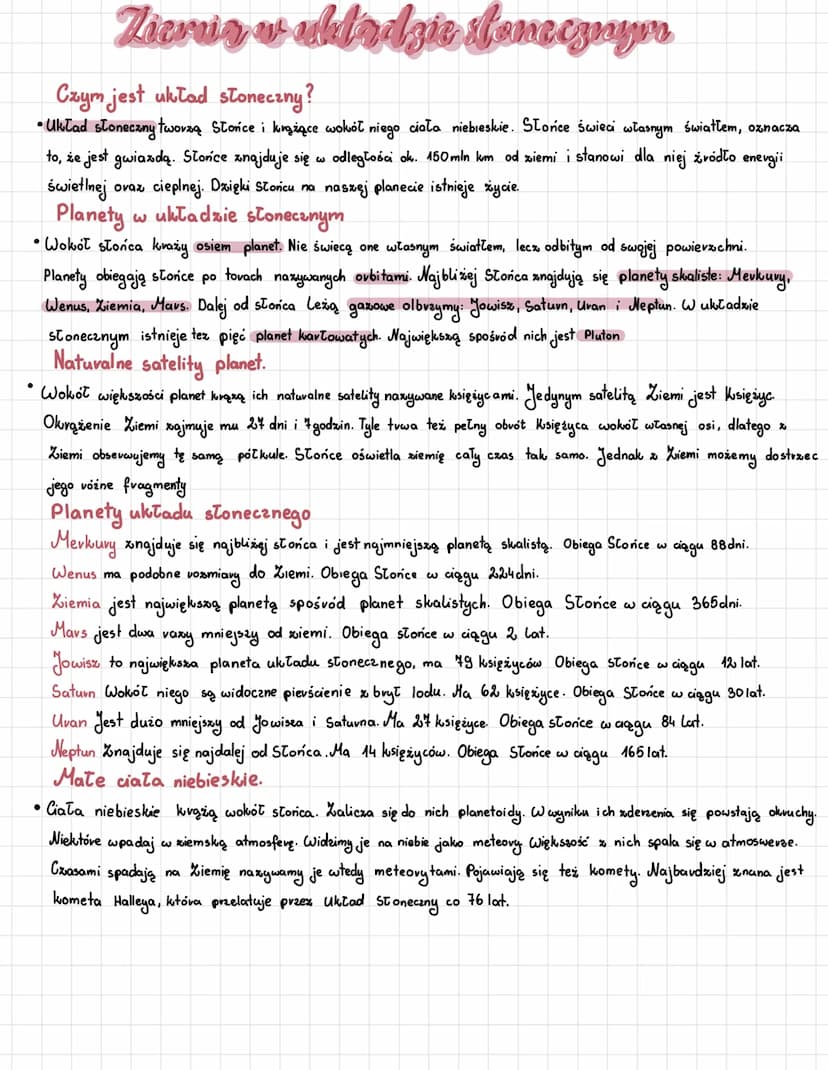 Ziemia w układzie słonecznym
Czym jest układ słoneczny?
• Układ słoneczny tworzą Słońce i krążące wokół niego ciała niebieskie. Słońce świeci własnym światłem, oznacza
to, że jest gwiazdą. Słońce znajduje się w odległości ok. 150mln km od ziemi i stanowi dla niej źródło energii
świetlnej oraz cieplnej. Dzięki Słońcu na naszej planecie istnieje życie.
Planety w układzie słonecznym
• Wokół słońca kraży osiem planet. Nie świecą one własnym światłem, lecz odbitym od swojej powierzchni.
Planety obiegają słońce po torach nazywanych orbitami. Najbliżej Słońca znajdują się planety skaliste: Merkury,
Wenus, Ziemia, Mars. Dalej od słońca leżą gazowe olbrzymy: Jowisz, Saturn, Uran i Neptun. W układzie
słonecznym istnieje tez pięć planet karłowatych. Największą spośród nich jest Pluton
Naturalne satelity planet.
• Wokół większości planet krążą ich naturalne satelity nazywane księżycami. Jedynym satelitą Ziemi jest Księżyc.
Okrążenie Ziemi zajmuje mu 27 dni i 7godzin. Tyle trwa też pełny obrót Księżyca wokół własnej osi, dlatego z
Ziemi obserwujemy tę samą półkule. Słońce oświetla ziemię cały czas tak samo. Jednak z Ziemi możemy dostrzec
jego różne fragmenty
Planety układu słonecznego
Merkury znajduje się najbliżej słońca i jest najmniejszą planetą skalistą. Obiega Słońce w ciągu 88dni.
Wenus ma podobne rozmiary do Ziemi. Obiega Słońce w ciągu 224dni.
Ziemia jest największą planetą spośród planet skalistych. Obiega Słońce w ciągu 365dni.
Mars jest dwa razy mniejszy od ziemi. Obiega słońce w ciągu 2 lat.
Jowisz to największa planeta układu słonecznego, ma 79 księżyców Obiega słońce w ciągu 12 lat.
Saturn Wokół niego są widoczne pierścienie z brył lodu. Ma 62 księżyce. Obiega Słońce w ciągu 30lat.
Uran Jest dużo mniejszy od Jowisza i Saturna. Ma 27 księżyce. Obiega słońce w ciągu 84 lat.
Neptun Znajduje się najdalej od Słońca. Ma 14 księżyców. Obiega Słońce w ciągu 165lat.
Małe ciała niebieskie.
• Ciała niebieskie krążą wokół słońca. Zalicza się do nich planetoidy. W wyniku ich zderzenia się powstają okruchy.
Niektóre wpadaj w ziemską atmosferę. Widzimy je na niebie jako meteory Większość z nich spala się w atmoswerze.
Czasami spadają na Ziemię nazywamy je wtedy meteorytami. Pojawiają się też komety. Najbardziej znana jest
kometa Halleya, która przelatuje przez Układ Słoneczny co 76 lat.